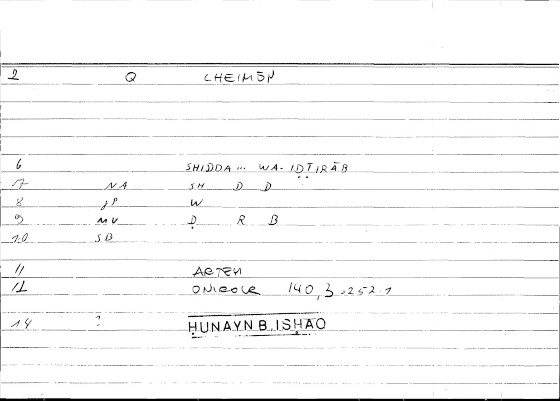 2 Q CHEIMŌN
6 SHIDDA... WA-IḌṬIRĀB
7 NA SH D D
8 JP W
9 MV Ḍ R B
10 SB
11 ARTEM
12 ONIROCR 140,3.252.1
14 ? ḤUNAYN B. ISḤAQ